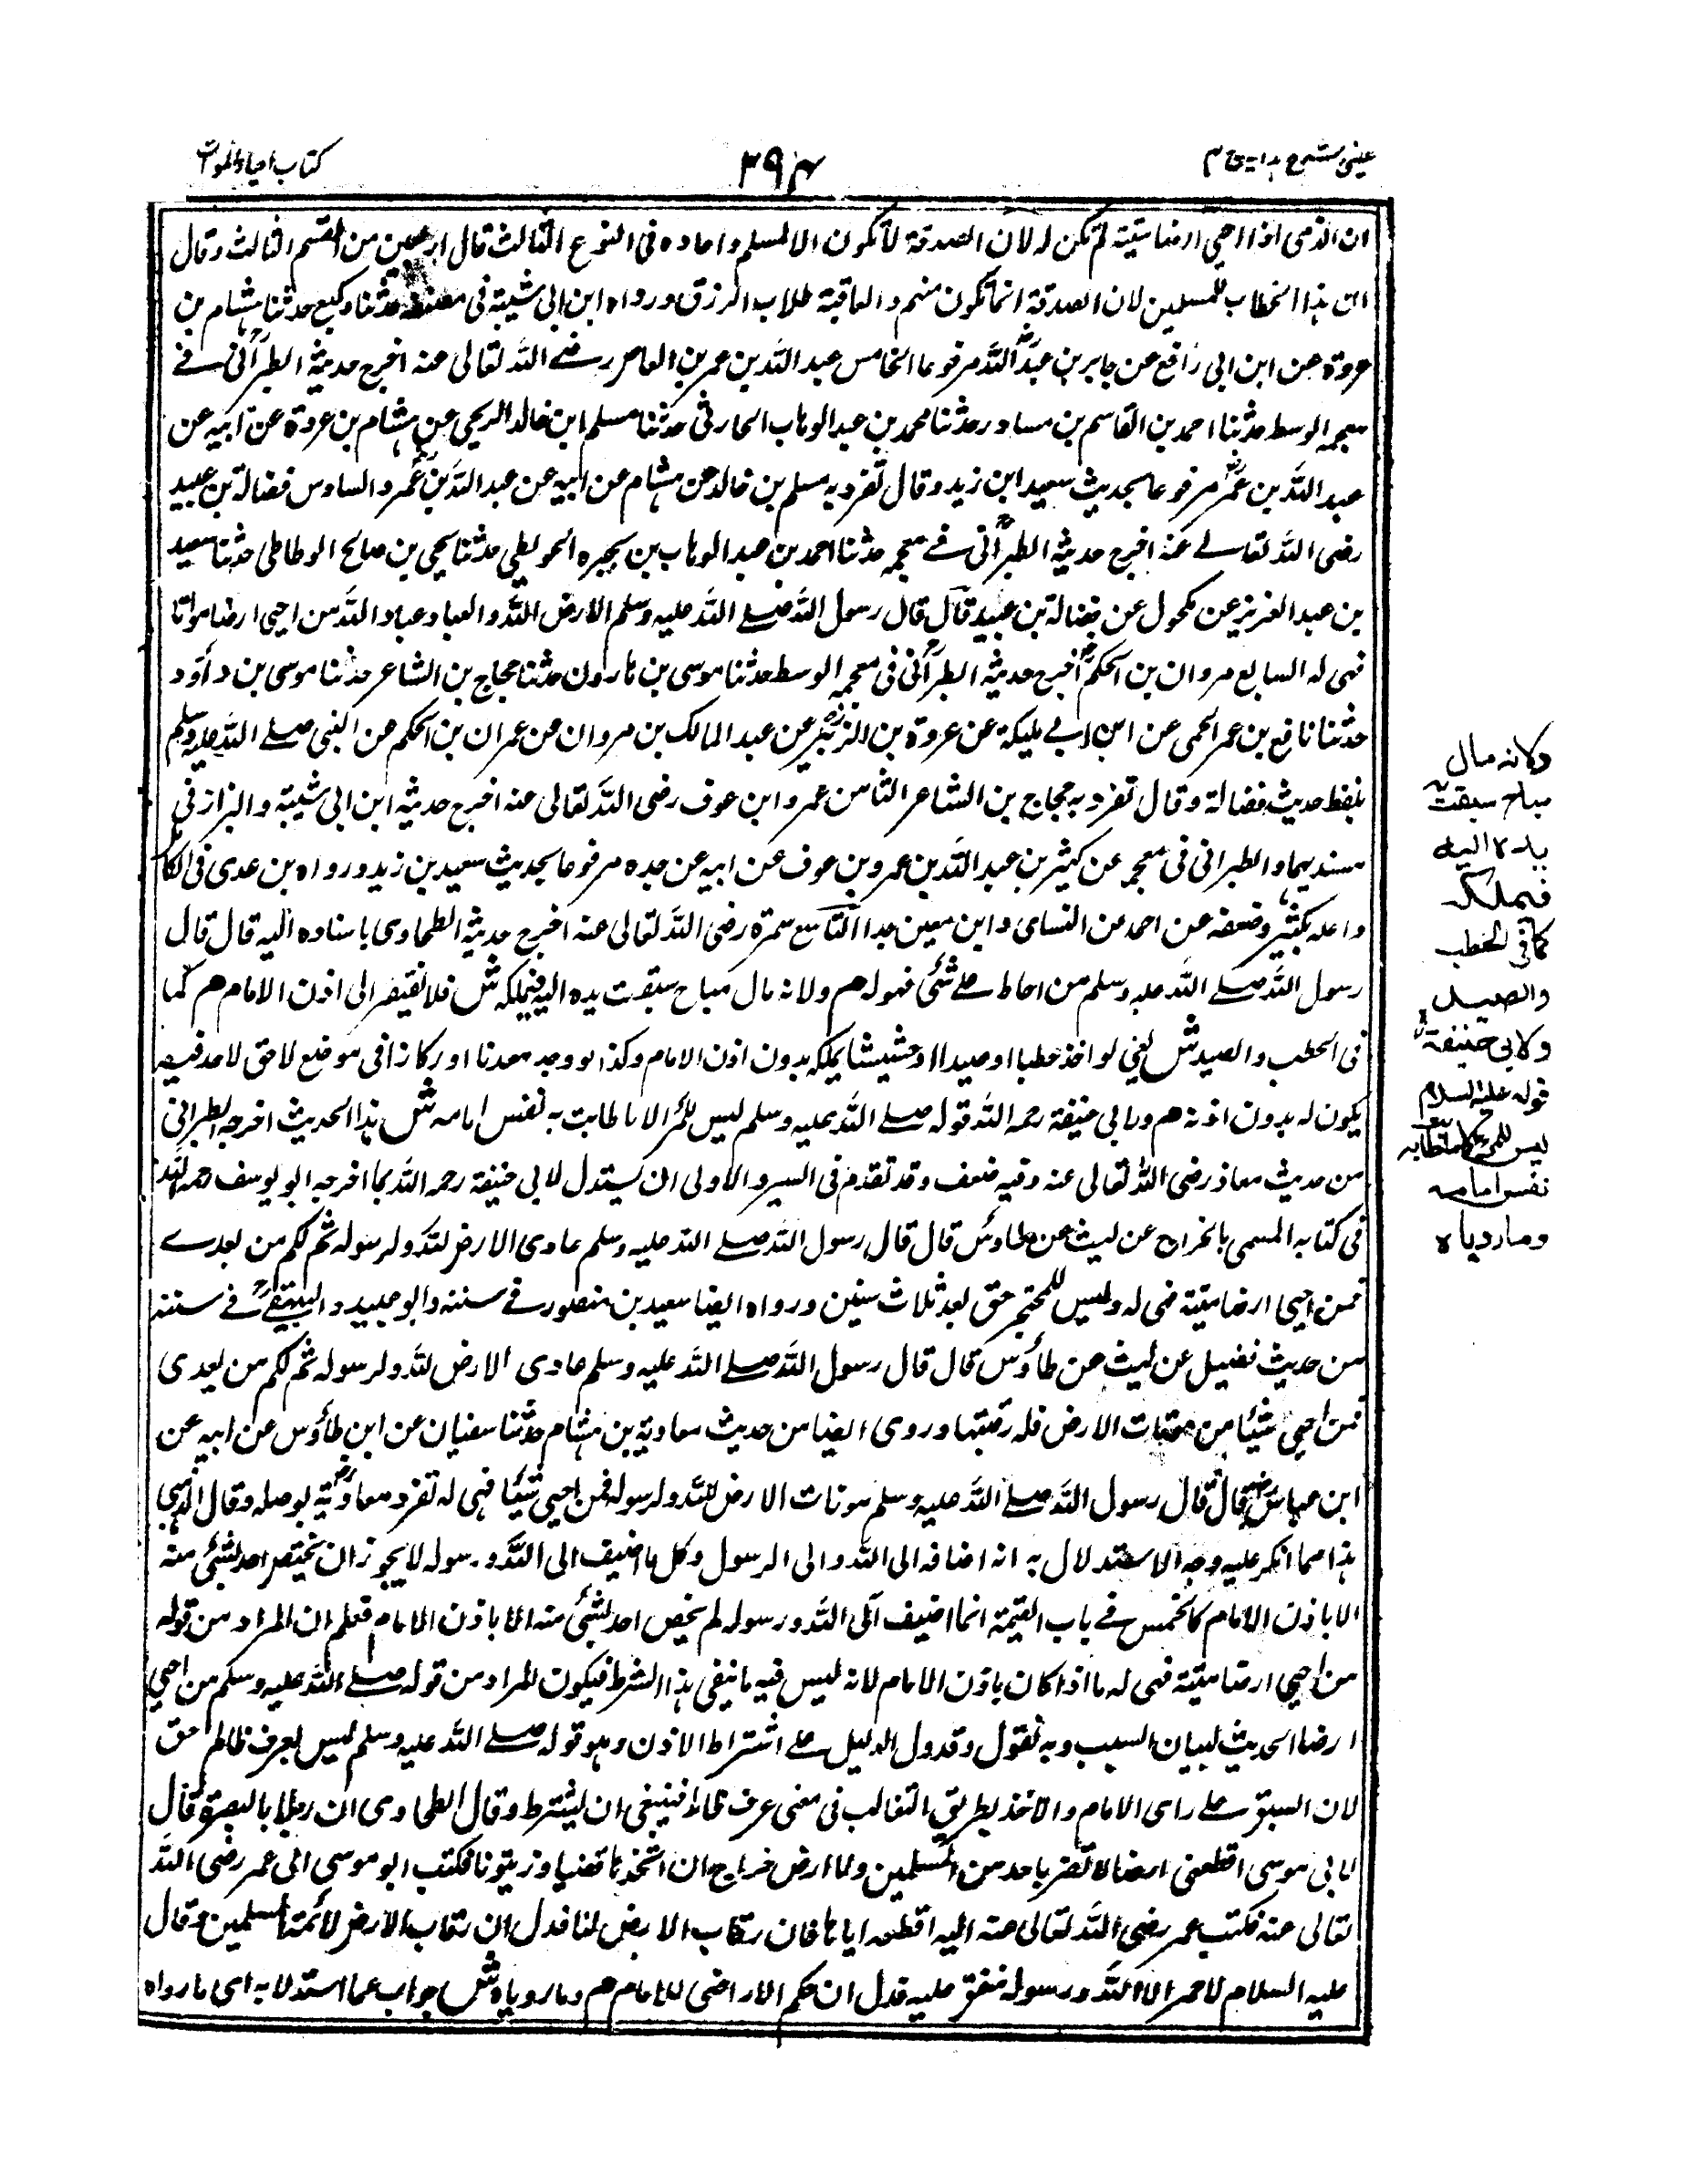 عینی شرح ہدایہ ج ۴
۳۹۴
کتاب احیاء الموات
ان الذمی اذا احیی ارضا میتة لم تکن له لان الصدقة لا تکون الا لمسلم واعاده فی النوع الثالث قال اربعین من القسم الثالث وقال
ان هذا الخطاب للمسلمین لان الصدقة انما تکون منهم والعاقبة طلاب الرزق ورواه ابن ابی شیبة فی مصنفه حدثنا وکیع حدثنا هشام بن
عروة عن ابن ابی رافع عن جابر بن عبد الله مرفوعا الخامس عبد الله بن عمر بن العاص رضے الله تعالی عنه اخرج حدیثه الطبرانی فے
معجمه الوسط حدثنا احمد بن القاسم بن مساور حدثنا محمد بن عبد الوهاب الحارثی حدثنا مسلم ابن خالد الریحی عن هشام بن عروة عن ابیه عن
عبد الله بن عمر مرفوعا بحدیث سعید ابن زید وقال تفرد به مسلم بن خالد عن هشام عن ابیه عن عبد الله بن عمر والسادس فضالة بن عبید
رضی الله تعالے عنه اخرج حدیثه الطبرانی فے معجمه حدثنا احمد بن عبد الوهاب بن بجیره الحوطی حدثنا یحیی بن صالح الوطاطی حدثنا سعید
بن عبد العزیز عن مکحول عن فضالة بن عبید قال قال رسول الله صلے الله علیه وسلم الارض الله والعباد عباد الله من احیی ارضا مواتا
فهی له السابع مروان بن الحکم اخرج حدیثه الطبرانی فی معجمه الوسط حدثنا موسی بن هارون حدثنا حجاج بن الشاعر حدثنا موسی بن داؤد
حدثنا نافع بن عمر الجمحی عن ابن ابے ملیکة عن عروة بن الزبیر عن عبد المالک بن مروان عن عمران بن الحکم عن النبی صلے الله علیه وسلم
بلفظ حدیث فضالة وقال تفرد به حجاج بن الشاعر الثامن عمرو ابن عوف رضی الله تعالی عنه اخرج حدیثه ابن ابی شیبة والبزار فی
مسندیهما والطبرانی فی معجمه عن کثیر بن عبد الله بن عمرو بن عوف عن ابیه عن جده مرفوعا بحدیث سعید بن زید ورواه بن عدی فی الکامل
واعله بکثیر وضعفه عن احمد عن النسای وابن معین جدا التاسع سمرة رضی الله تعالی عنه اخرج حدیثه الطحاوی باسناده الیه قال قال
رسول الله صلے الله علیه وسلم من احاط علے شئ فهو له هم ولانه مال مباح سبقت یده الیه فیملکه ش فلا یفتقر الی اذن الامام هم کما
فی الحطب والصید ش یعنی لو اخذ حطبا او صیدا او حشیشا یملکه بدون اذن الامام وکذا لو وجد معدنا او رکازا فی موضع لاحق لاحد فیه
یکون له بدون اذنه هم ولابی حنیفة رحمه الله قوله صلے الله علیه وسلم لیس للمرء الا ما طابت به نفس امامه ش هذا الحدیث اخرجه الطبرانی
من حدیث معاذ رضی الله تعالی عنه وفیه ضعف وقد تقدم فی السیر والاولی ان یستدل لابی حنیفة رحمه الله بما اخرجه ابو یوسف رحمه الله
فی کتابه المسمی بالخراج عن لیث عن طاوس قال قال رسول الله صلے الله علیه وسلم عادی الارض لله ولرسوله ثم لکم من بعدے
فمن احیی ارضا میتة فهی له ولیس للمحتجر حق بعد ثلاث سنین ورواه ایضا سعید بن منصور فے سننه وابو عبید والبیهقے فے سننه
من حدیث فضیل عن لیث عن طاؤس قال قال رسول الله صلے الله علیه وسلم عادی الارض لله ولرسوله ثم لکم من بعدی
فمن احیی شیئا من موتات الارض فله رقبتها وروی ایضا من حدیث معاویة بن هشام حدثنا سفیان عن ابن طاؤس عن ابیه عن
ابن عباس قال قال رسول الله صلے الله علیه وسلم موتات الارض لله ولرسوله فمن احیی شیئا فهی له تفرد معاویة بوصله وقال الذهبی
هذا مما انکر علیه وجه الاستدلال به انه اضافه الی الله والی الرسول وکل ما اضیف الی الله ورسوله لا یجوز ان یختص احد بشئ منه
الا باذن الامام کالخمس فے باب الغنیمة انما اضیف الی الله ورسوله لم یخص احد بشئ منه الا باذن الامام فعلم ان المراد من قوله
من احیی ارضا میتة فهی له ما اذا کان باذن الامام لانه لیس فیه ما ینفی هذا الشرط فیکون المراد من قوله صلے الله علیه وسلم من احیی
ارضا الحدیث لبیان السبب وبه نقول وقد دل الدلیل علے اشتراط الاذن وهو قوله صلے الله علیه وسلم لیس لعرق ظالم حق
لان السبق علے رای الامام والاخذ بطریق التغالب فی معنی عرق ظالم فینبغی ان یشترط وقال الطحاوی ان رجلا بالبصرة قال
لابی موسی اقطعنی ارضا لا تضر باحد من المسلمین ولا ارض خراج ان اتخذها قضبا وزیتونا فکتب ابو موسی الی عمر رضی الله
تعالی عنه فکتب عمر رضی الله تعالی عنه الیه اقطعه ایاها فان رقاب الارض لنا فدل ان رقاب الارض لائمة المسلمین وقال
علیه السلام لا حمی الا لله ورسوله متفق علیه فدل ان حکم الاراضی للامام هم وما رویاه ش جواب عما استدلا به ای ما رواه
ولانه مال
مباح سبقت
یده الیه
فیملکه
کما فی الحطب
والصید
ولابی حنیفة
قوله علیه السلام
لیس للمرء الا ما طابت به
نفس امامه
وما رویاه